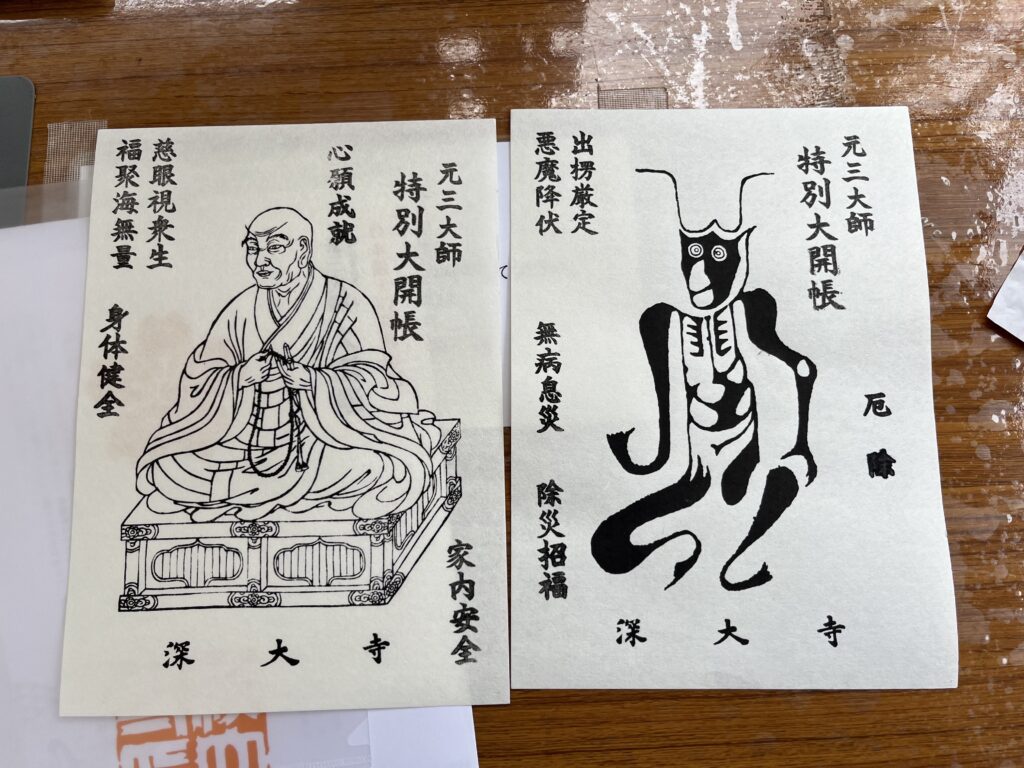 元三大師
特別大開帳
心願成就
慈眼視衆生
福聚海無量
身体健全
家内安全
深大寺
元三大師
特別大開帳
厄除
出楞厳定
悪魔降伏
無病息災
除災招福
深大寺